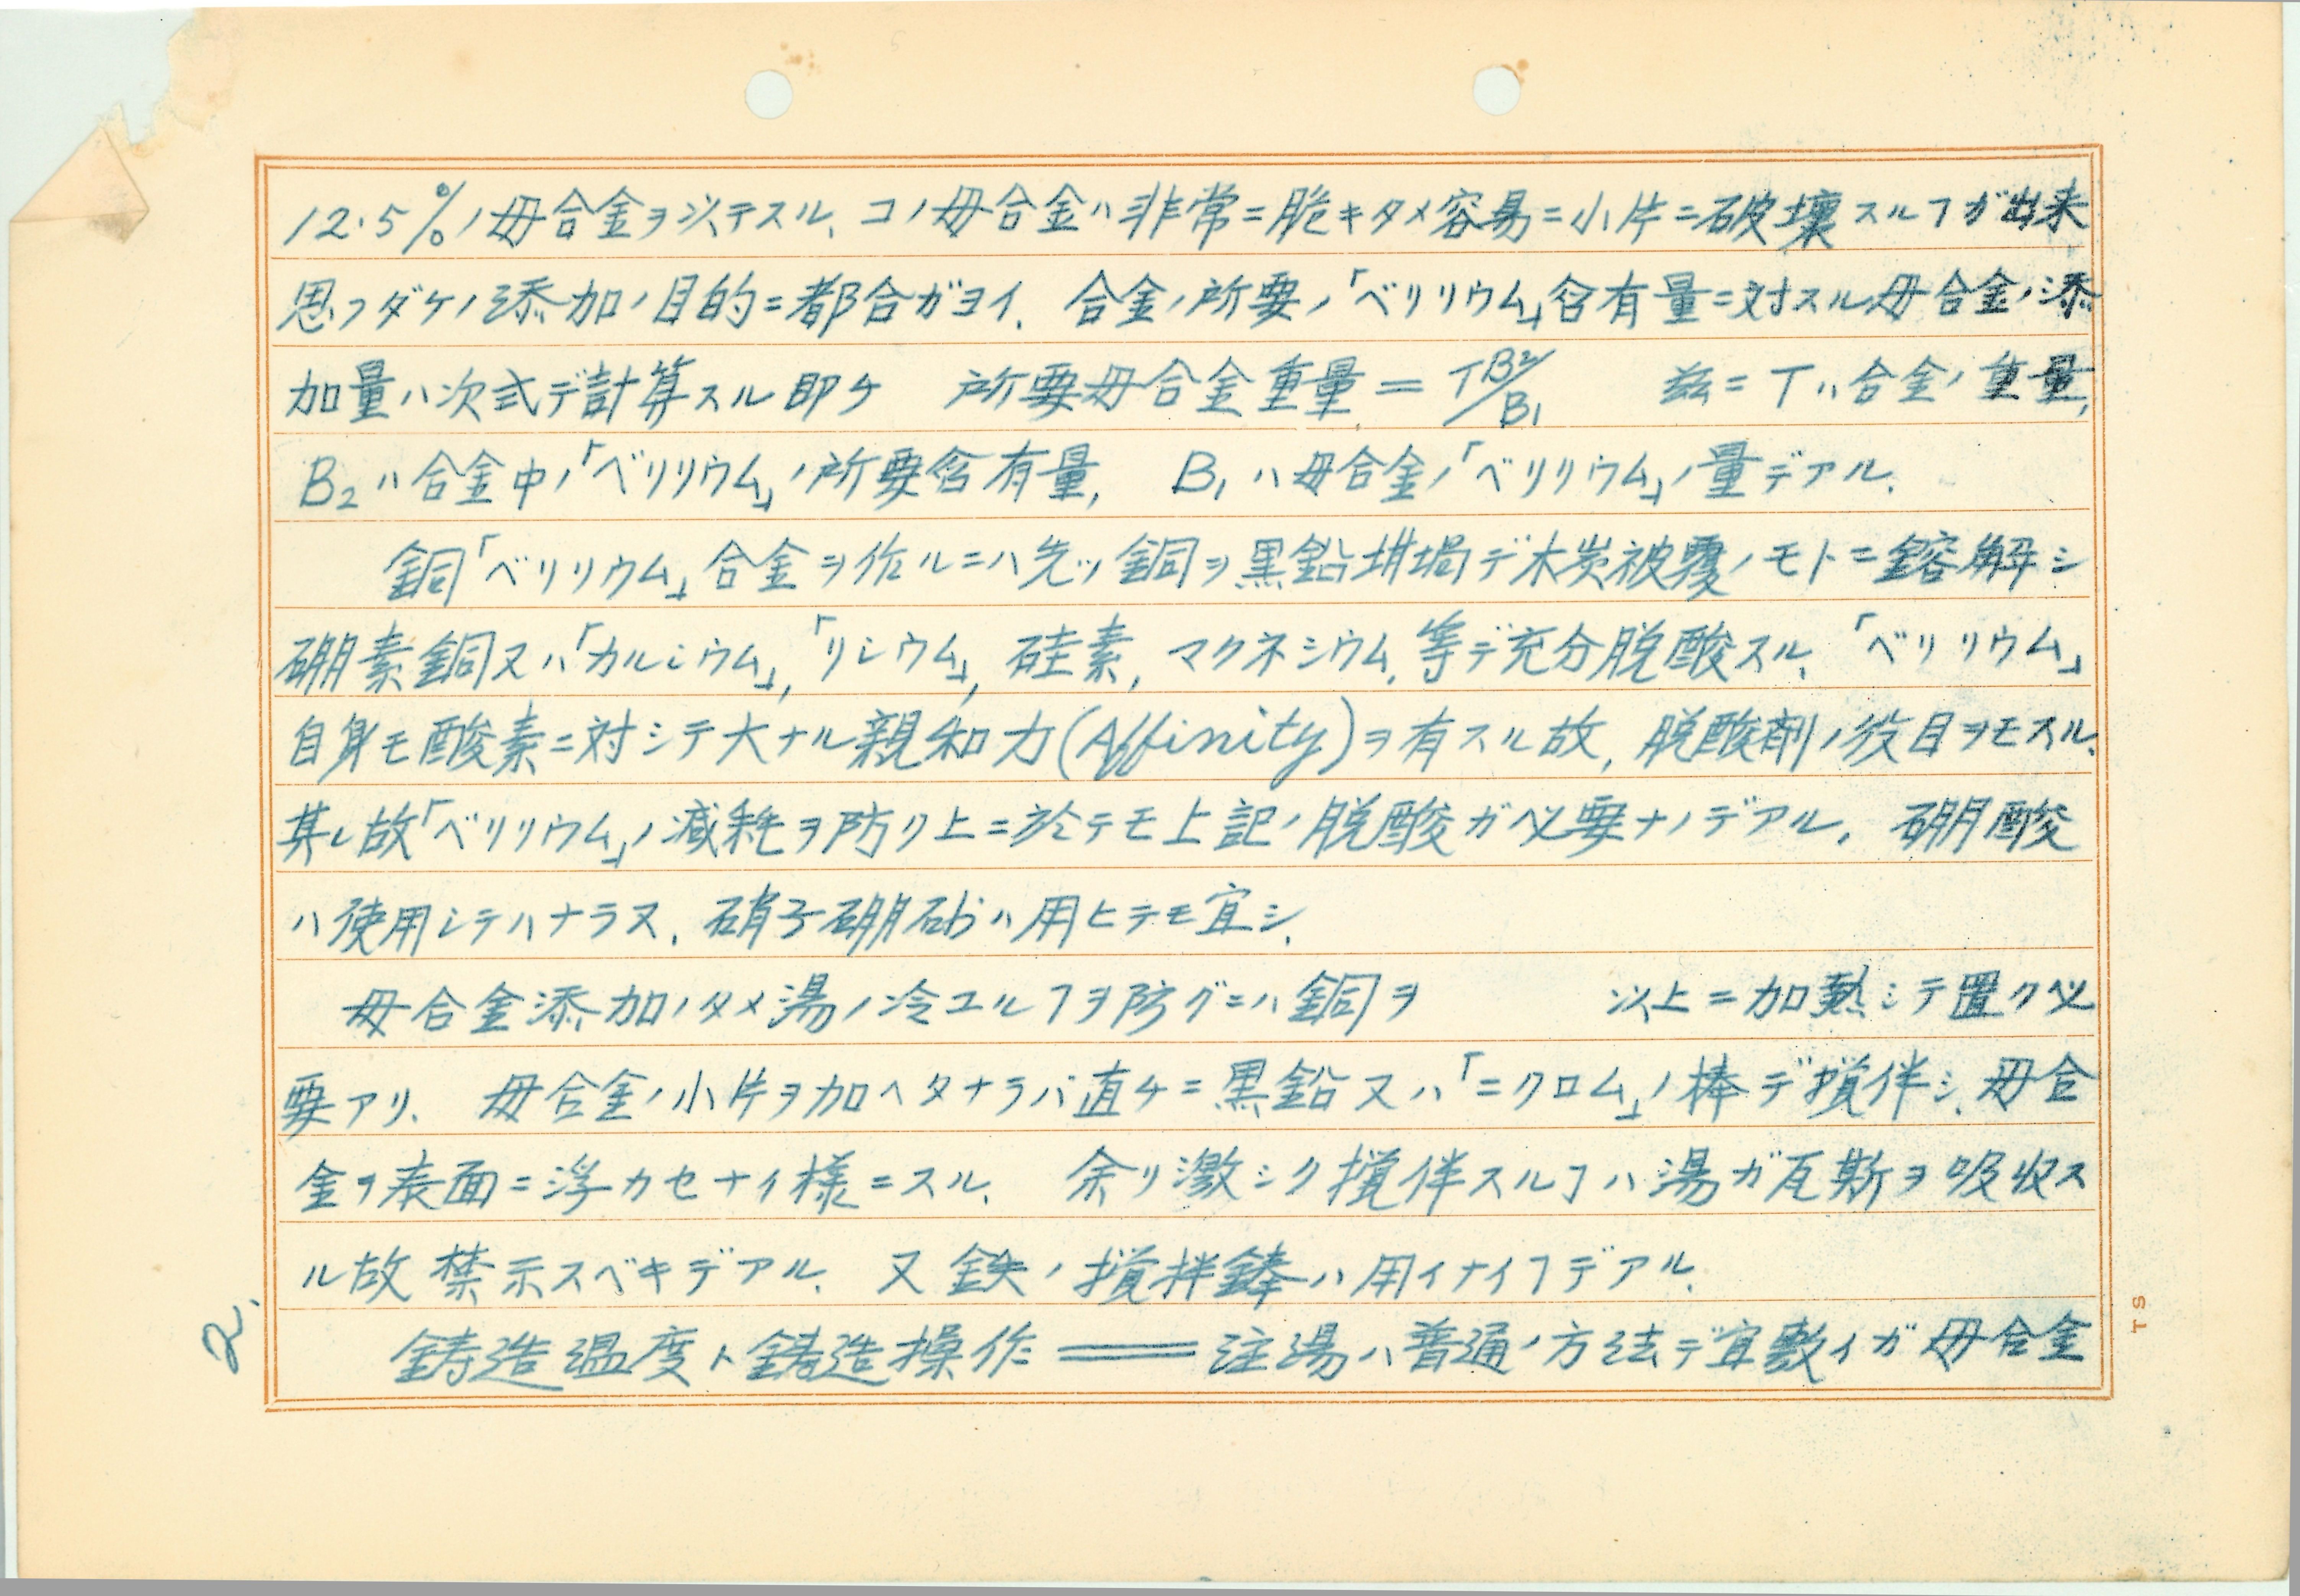 12.5%ノ母合金ヲ以テスル、コノ母合金ハ非常ニ脆キタメ容易ニ小片ニ破壊スルヿガ出来
思フダケノ添加ノ目的ニ都合ガヨイ、合金ノ所要ノ「ベリリウム」含有量ニ対スル母合金ノ添
加量ハ次式デ計算スル即チ 所要母合金重量 = TB2/B1 茲ニTハ合金ノ重量,
B2ハ合金中ノ「ベリリウム」ノ所要含有量, B1ハ母合金ノ「ベリリウム」ノ量デアル、
銅「ベリリウム」合金ヲ作ルニハ先ッ銅ヲ黒鉛坩堝デ木炭被覆ノモトニ鎔解シ
硼素銅又ハ「カルシウム」,「リシウム」, 硅素, マクネシウム, 等デ充分脱酸スル、「ベリリウム」
自身モ酸素ニ対シテ大ナル親和力(Affinity)ヲ有スル故, 脱酸剤ノ役目ヲモスル、
其レ故「ベリリウム」ノ減耗ヲ防リ上ニ於テモ上記ノ脱酸ガ必要ナノデアル、硼酸
ハ使用シテハナラヌ、硝子硼砂ハ用ヒテモ宜シ、
母合金添加ノタメ湯ノ冷エルヿヲ防グニハ銅ヲ 以上ニ加熱シテ置ク必
要アリ、母合金ノ小片ヲ加ヘタナラバ直チニ黒鉛又ハ「ニクロム」ノ棒デ攪伴シ、母合
金ヲ表面ニ浮カセナイ様ニスル、余リ激シク攪伴スルヿハ湯ガ瓦斯ヲ吸収ス
ル故禁示スベキデアル、又鉄ノ攪拌鋒ハ用イナイヿデアル、
鋳造温度ト鋳造操作 ══ 注湯ハ普通ノ方法デ宜敷イガ母合金
2.
TS